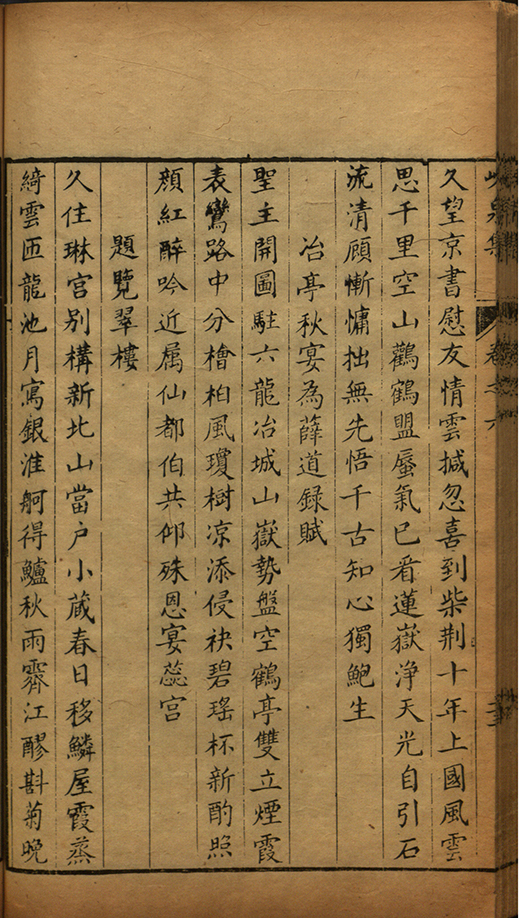 久望京書慰友情雲椷忽喜到柴荆十年上國風雲
思千里空山鸛鶴盟蜃氣已看蓮嶽淨天光自引石
流清顧慚慵拙無先悟千古知心獨鮑生
冶亭秋宴為薛道録賦
聖主開圖駐六龍冶城山嶽勢盤空鶴亭雙立煙霞
表鸞路中分檜柏風瓊樹凉添侵袂碧瑤杯新酌照
顔紅醉吟近属仙都伯共仰殊恩宴蕊宮
題覽翠樓
久住琳宮别構新北山當户小蔵春日移鱗屋霞蒸
綺雲匝龍池月寫銀淮舸得鱸秋雨霽江醪斟菊晚